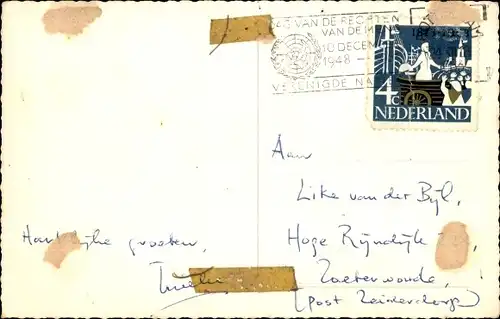 DAG VAN DE RECHTEN
VAN DE
10 DECEM
1948 —
VERENIGDE NA
4c
NEDERLAND
Aan
Like van der Bijl,
Hoge Rijndijk
Zoeterwoude,
(post Leiderdorp)
Hartelijke groeten,